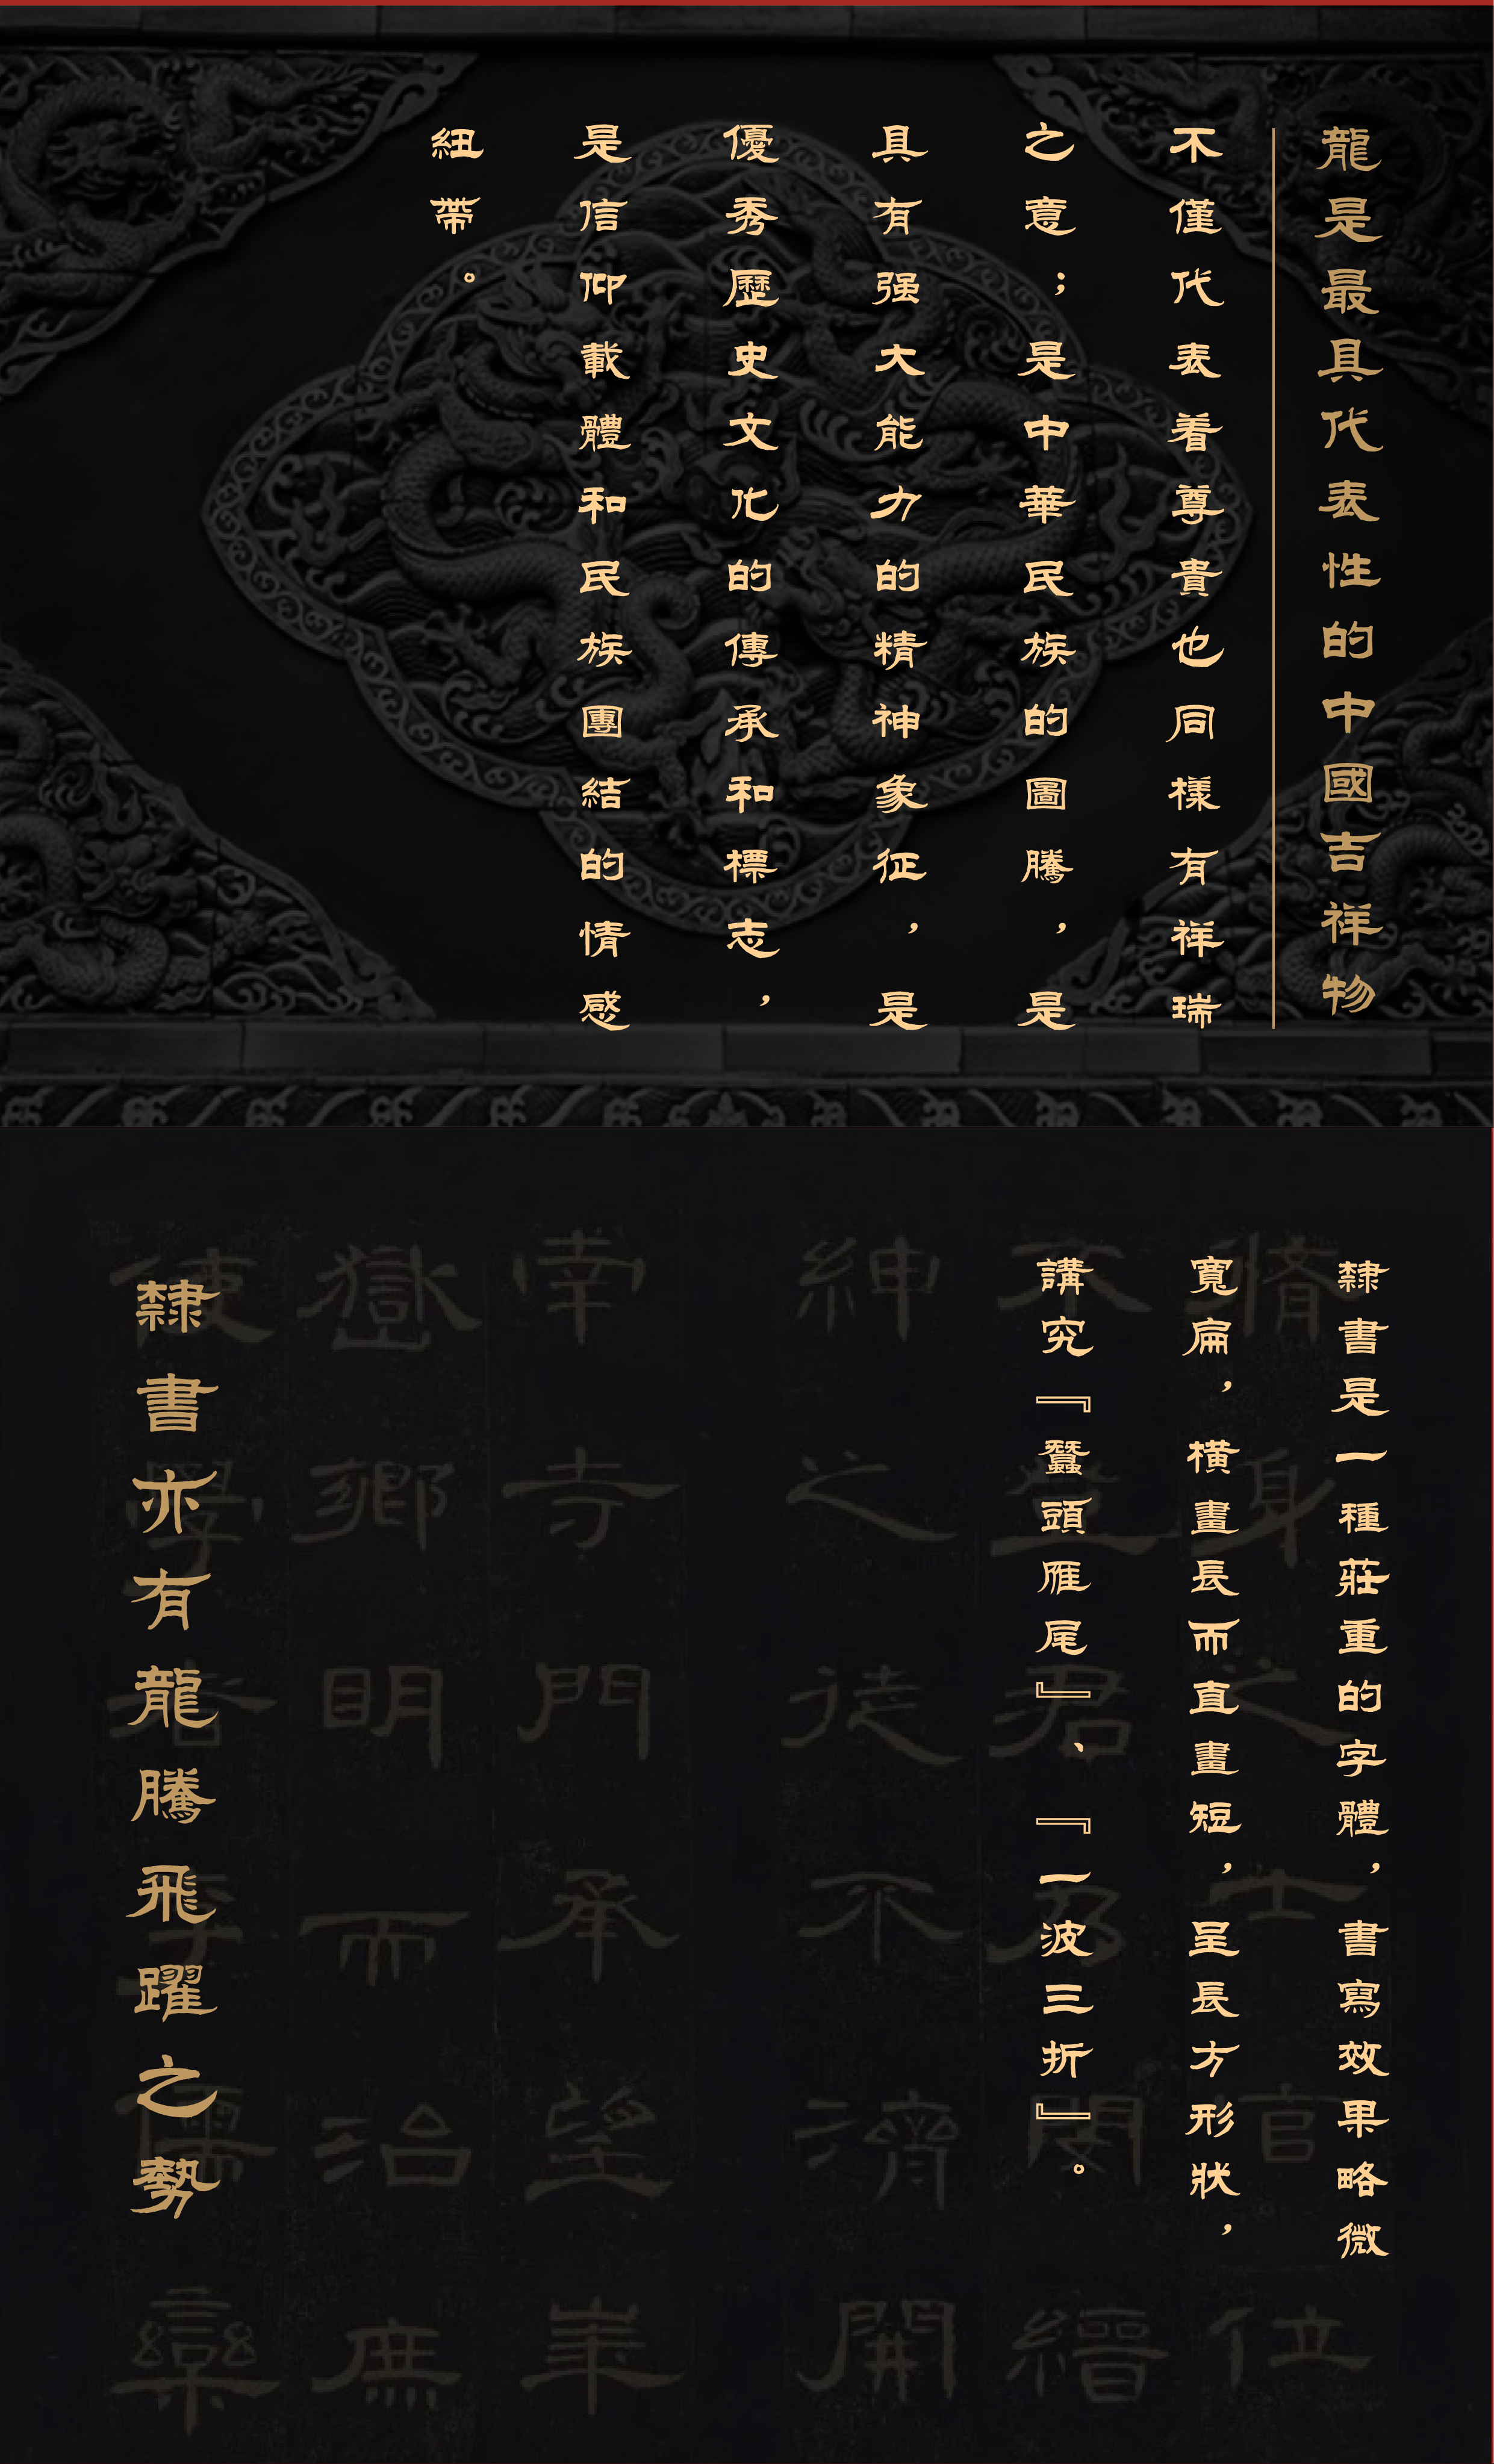 龍是最具代表性的中國吉祥物
不僅代表着尊貴也同樣有祥瑞
之意；是中華民族的圖騰，是
具有强大能力的精神象征，是
優秀歷史文化的傳承和標志，
是信仰載體和民族團結的情感
紐帶。
隸書是一種莊重的字體，書寫效果略微
寬扁，橫畫長而直畫短，呈長方形狀，
講究『蠶頭雁尾』、『一波三折』。
隸書亦有龍騰飛躍之勢
脩身之士官位
不登君乃閔縉
紳之徒不濟開
幸寺門承望
嶽鄉明而治庶